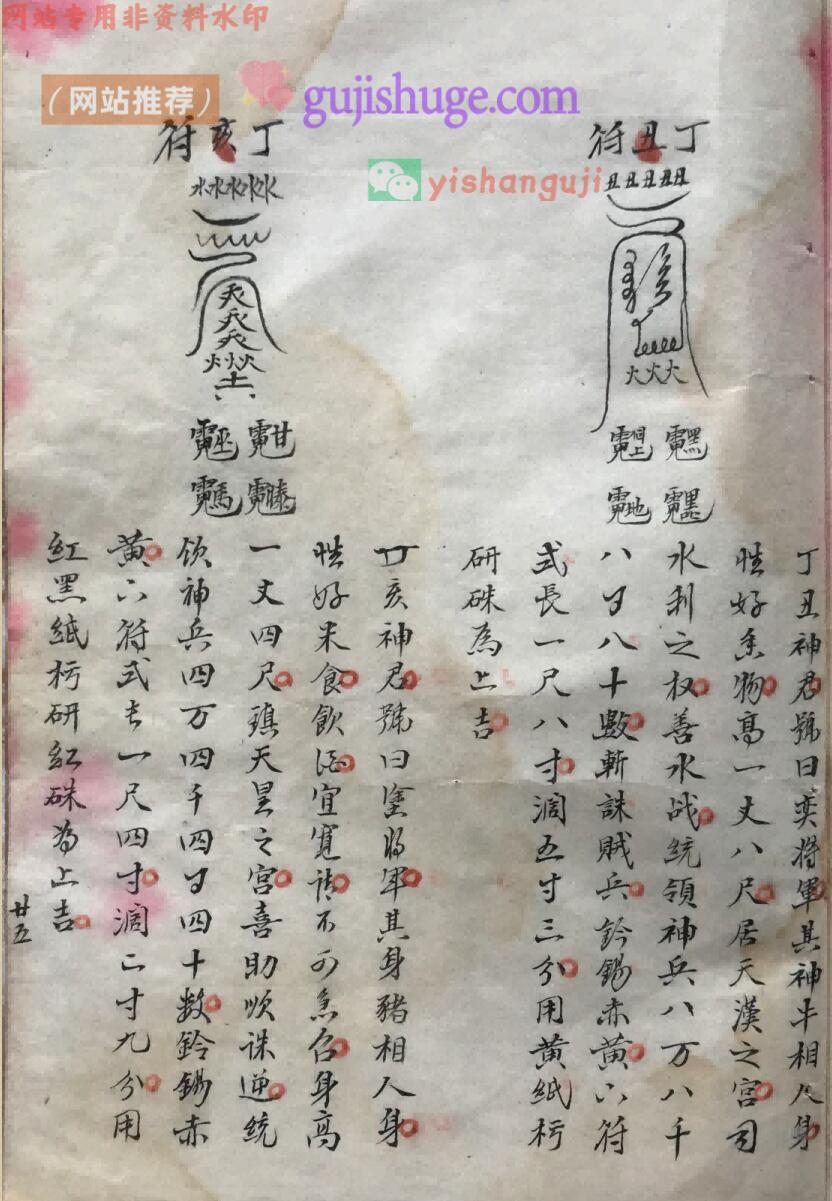 网站专用非资料水印
（网站推荐）
gujishuge.com
yishanguji
丁丑符
丑丑丑丑丑
火火火
丁丑神君號曰奕將軍其神牛相人身
性好魚物高一丈八尺居天漢之宮司
水利之权善水战統領神兵八万八千
八百八十數斬誅賊兵鈴錫赤黄六符
式長一尺八寸濶五寸三分用黄紙朽
研硃為上吉
丁亥符
水水水水水
火火火
丁亥神君號曰塗將軍其身豬相人身
性好米食飲酒宜寬請不可急召身高
一丈四尺鎮天星之宮喜助順誅逆統
领神兵四万四千四百四十数鈴錫赤
黄六符式長一尺四寸濶二寸九分用
紅黑紙朽研紅硃為上吉
廿五